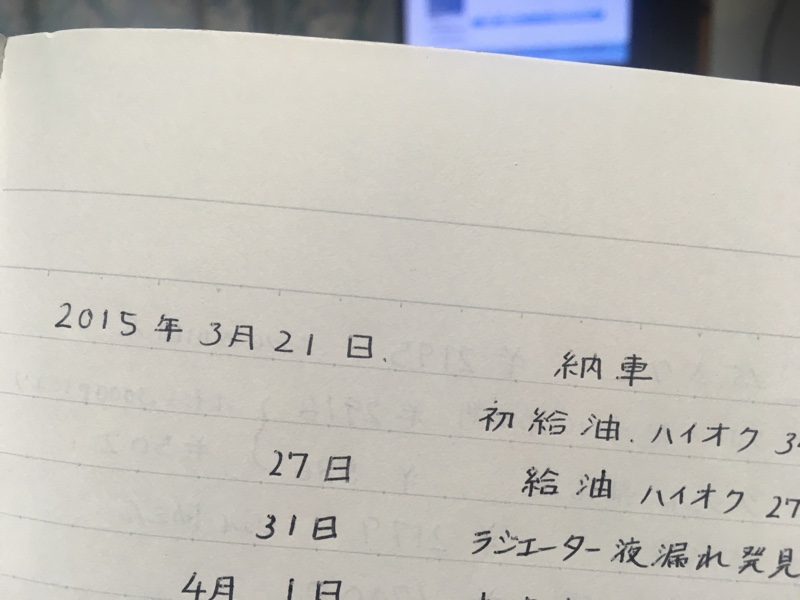 2015年3月21日. 納車
初給油. ハイオク 3
27日 給油 ハイオク 27
31日 ラジエーター液漏れ発見
4月 1日